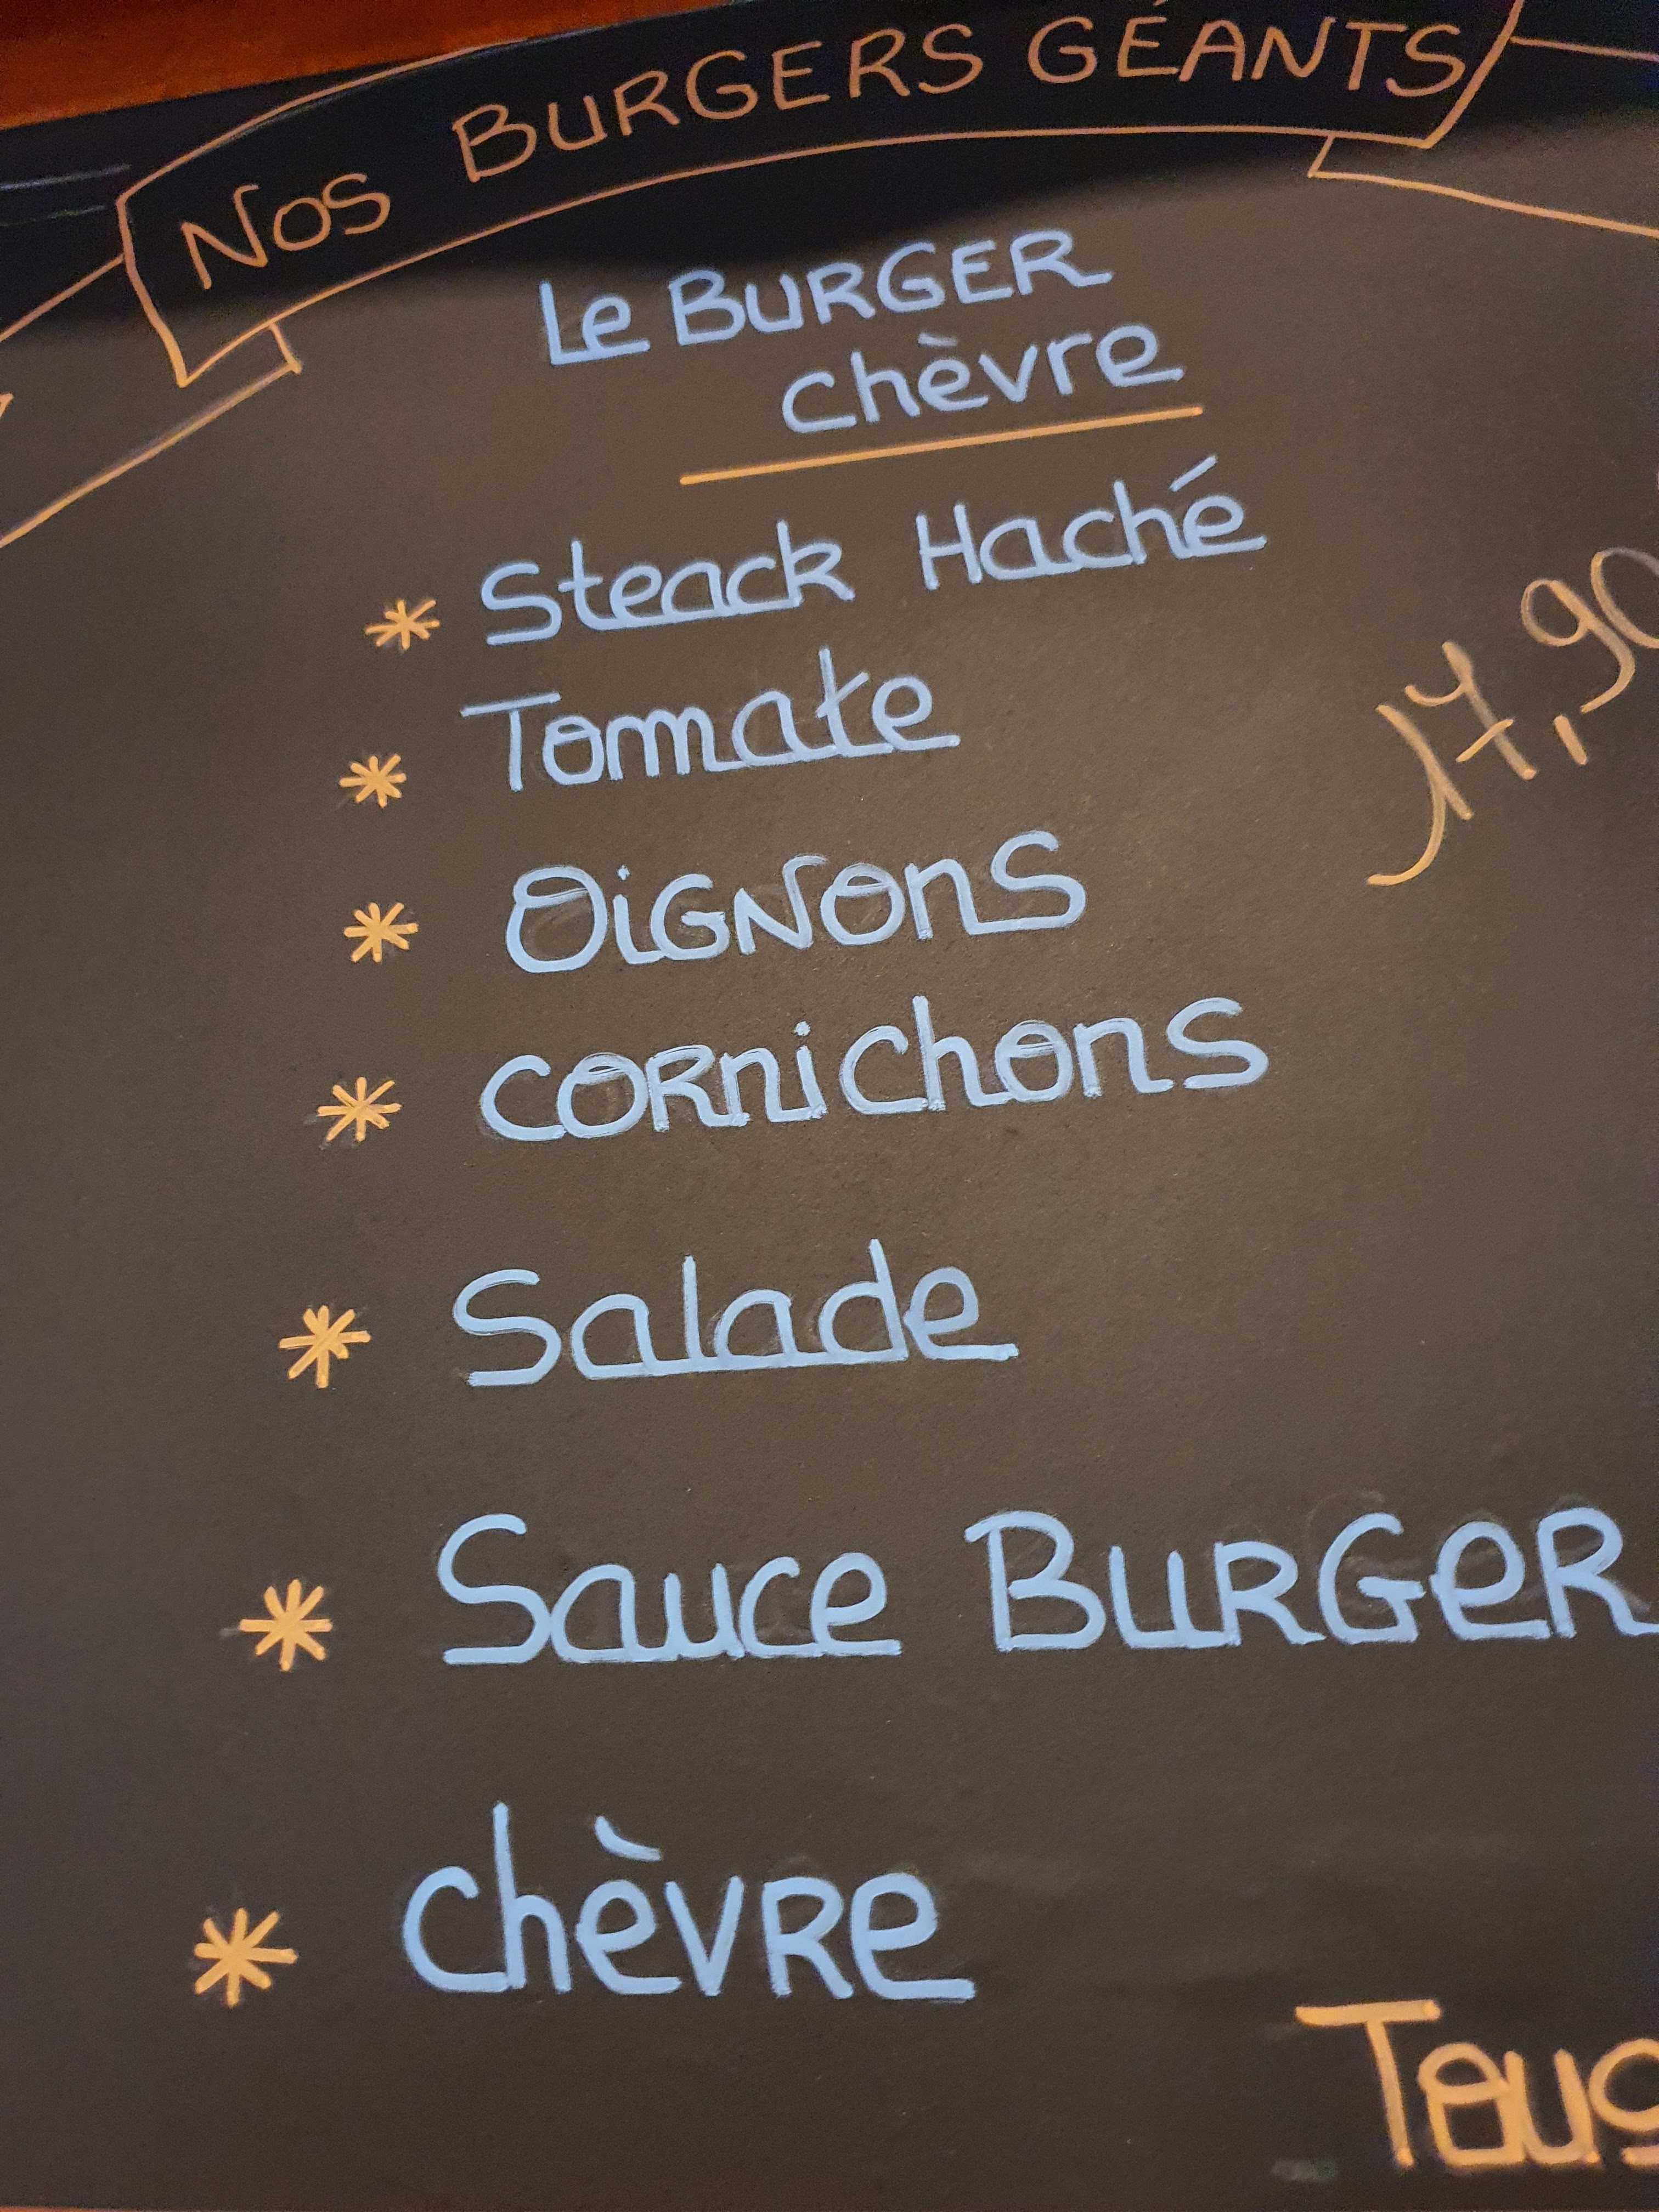 NOS BURGERS GÉANTS
Le BURGER
chèvre
* Steack Haché
* Tomate
17,90
* OiGNONS
* CORNiChonS
* Salade
* Sauce BURGER
* chèvre
Tous